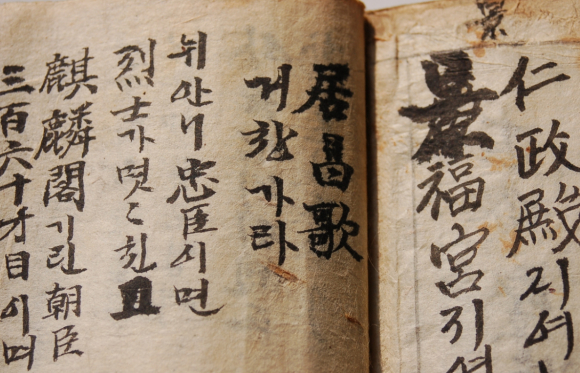 景
仁政殿지여
景福宮지여
居昌歌
거창가라
뉘안니忠臣이면
烈士가몃〻친
麒麟閣기린朝臣
三百六十才目이며